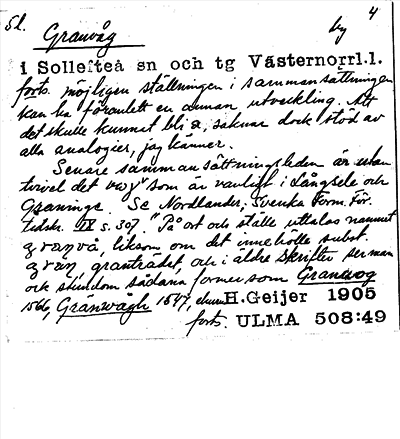 Sl. Granvåg by 4
i Sollefteå sn och tg Västernorrl.l.
forts. möjligen ställningen i sammansättningen
kan ha föranlett en annan utveckling. Att
det skulle kunnat bli a, saknar dock stöd av
alla analogier, jag känner.
Senare sammansättningsleden är utan
tvivel det som är vanligt i Långsele och
Graninge. Se Nordlander, Svenska Form. För.
tidskr. IX s. 307. "På ort och ställe uttalas namnet
granvå, liksom om det innehölle subst.
gran, granträdet, och i äldre skrifter ser man
ock stundom sådana former som Granwog
1566, Gränwågh 1547,
H.Geijer 1905
forts. ULMA 508:49